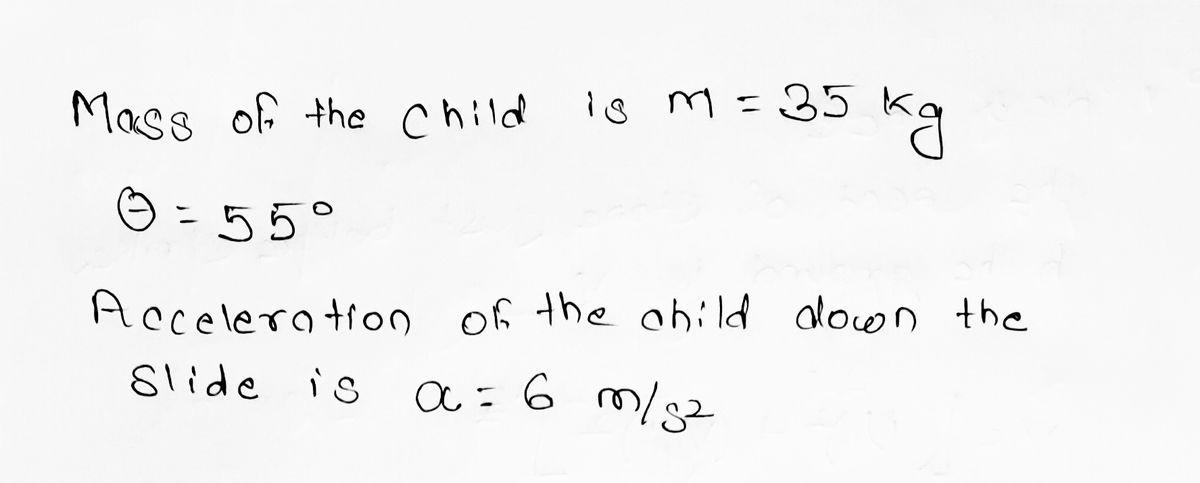 Mass of the child is m = 35 kg
θ = 55°
Acceleration of the child down the
slide is a = 6 m/s²